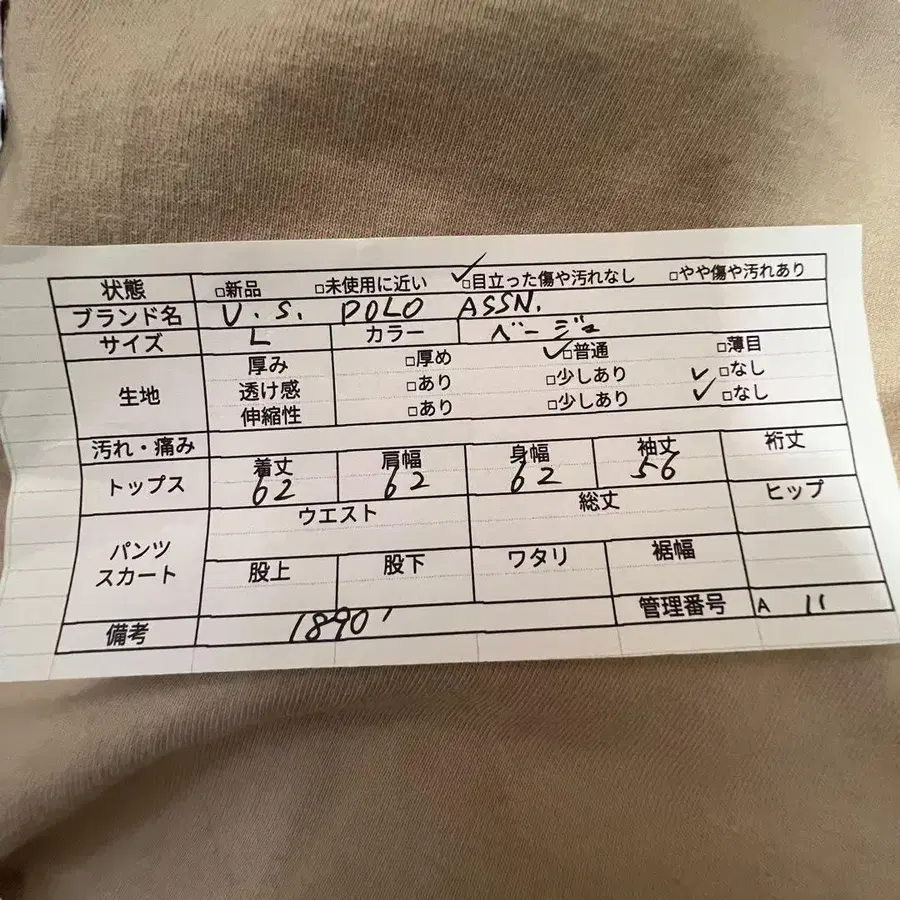 状態 □新品 □未使用に近い ✓□目立った傷や汚れなし □やや傷や汚れあり
ブランド名 U.S. POLO ASSN.
サイズ L カラー ベージュ
生地 厚み □厚め ✓□普通 □薄目
透け感 □あり □少しあり ✓□なし
伸縮性 □あり □少しあり ✓□なし
汚れ・痛み
トップス 着丈 肩幅 身幅 袖丈 裄丈
62 62 62 56
パンツ スカート ウエスト 総丈 ヒップ
股上 股下 ワタリ 裾幅
備考 1890' 管理番号 A 11